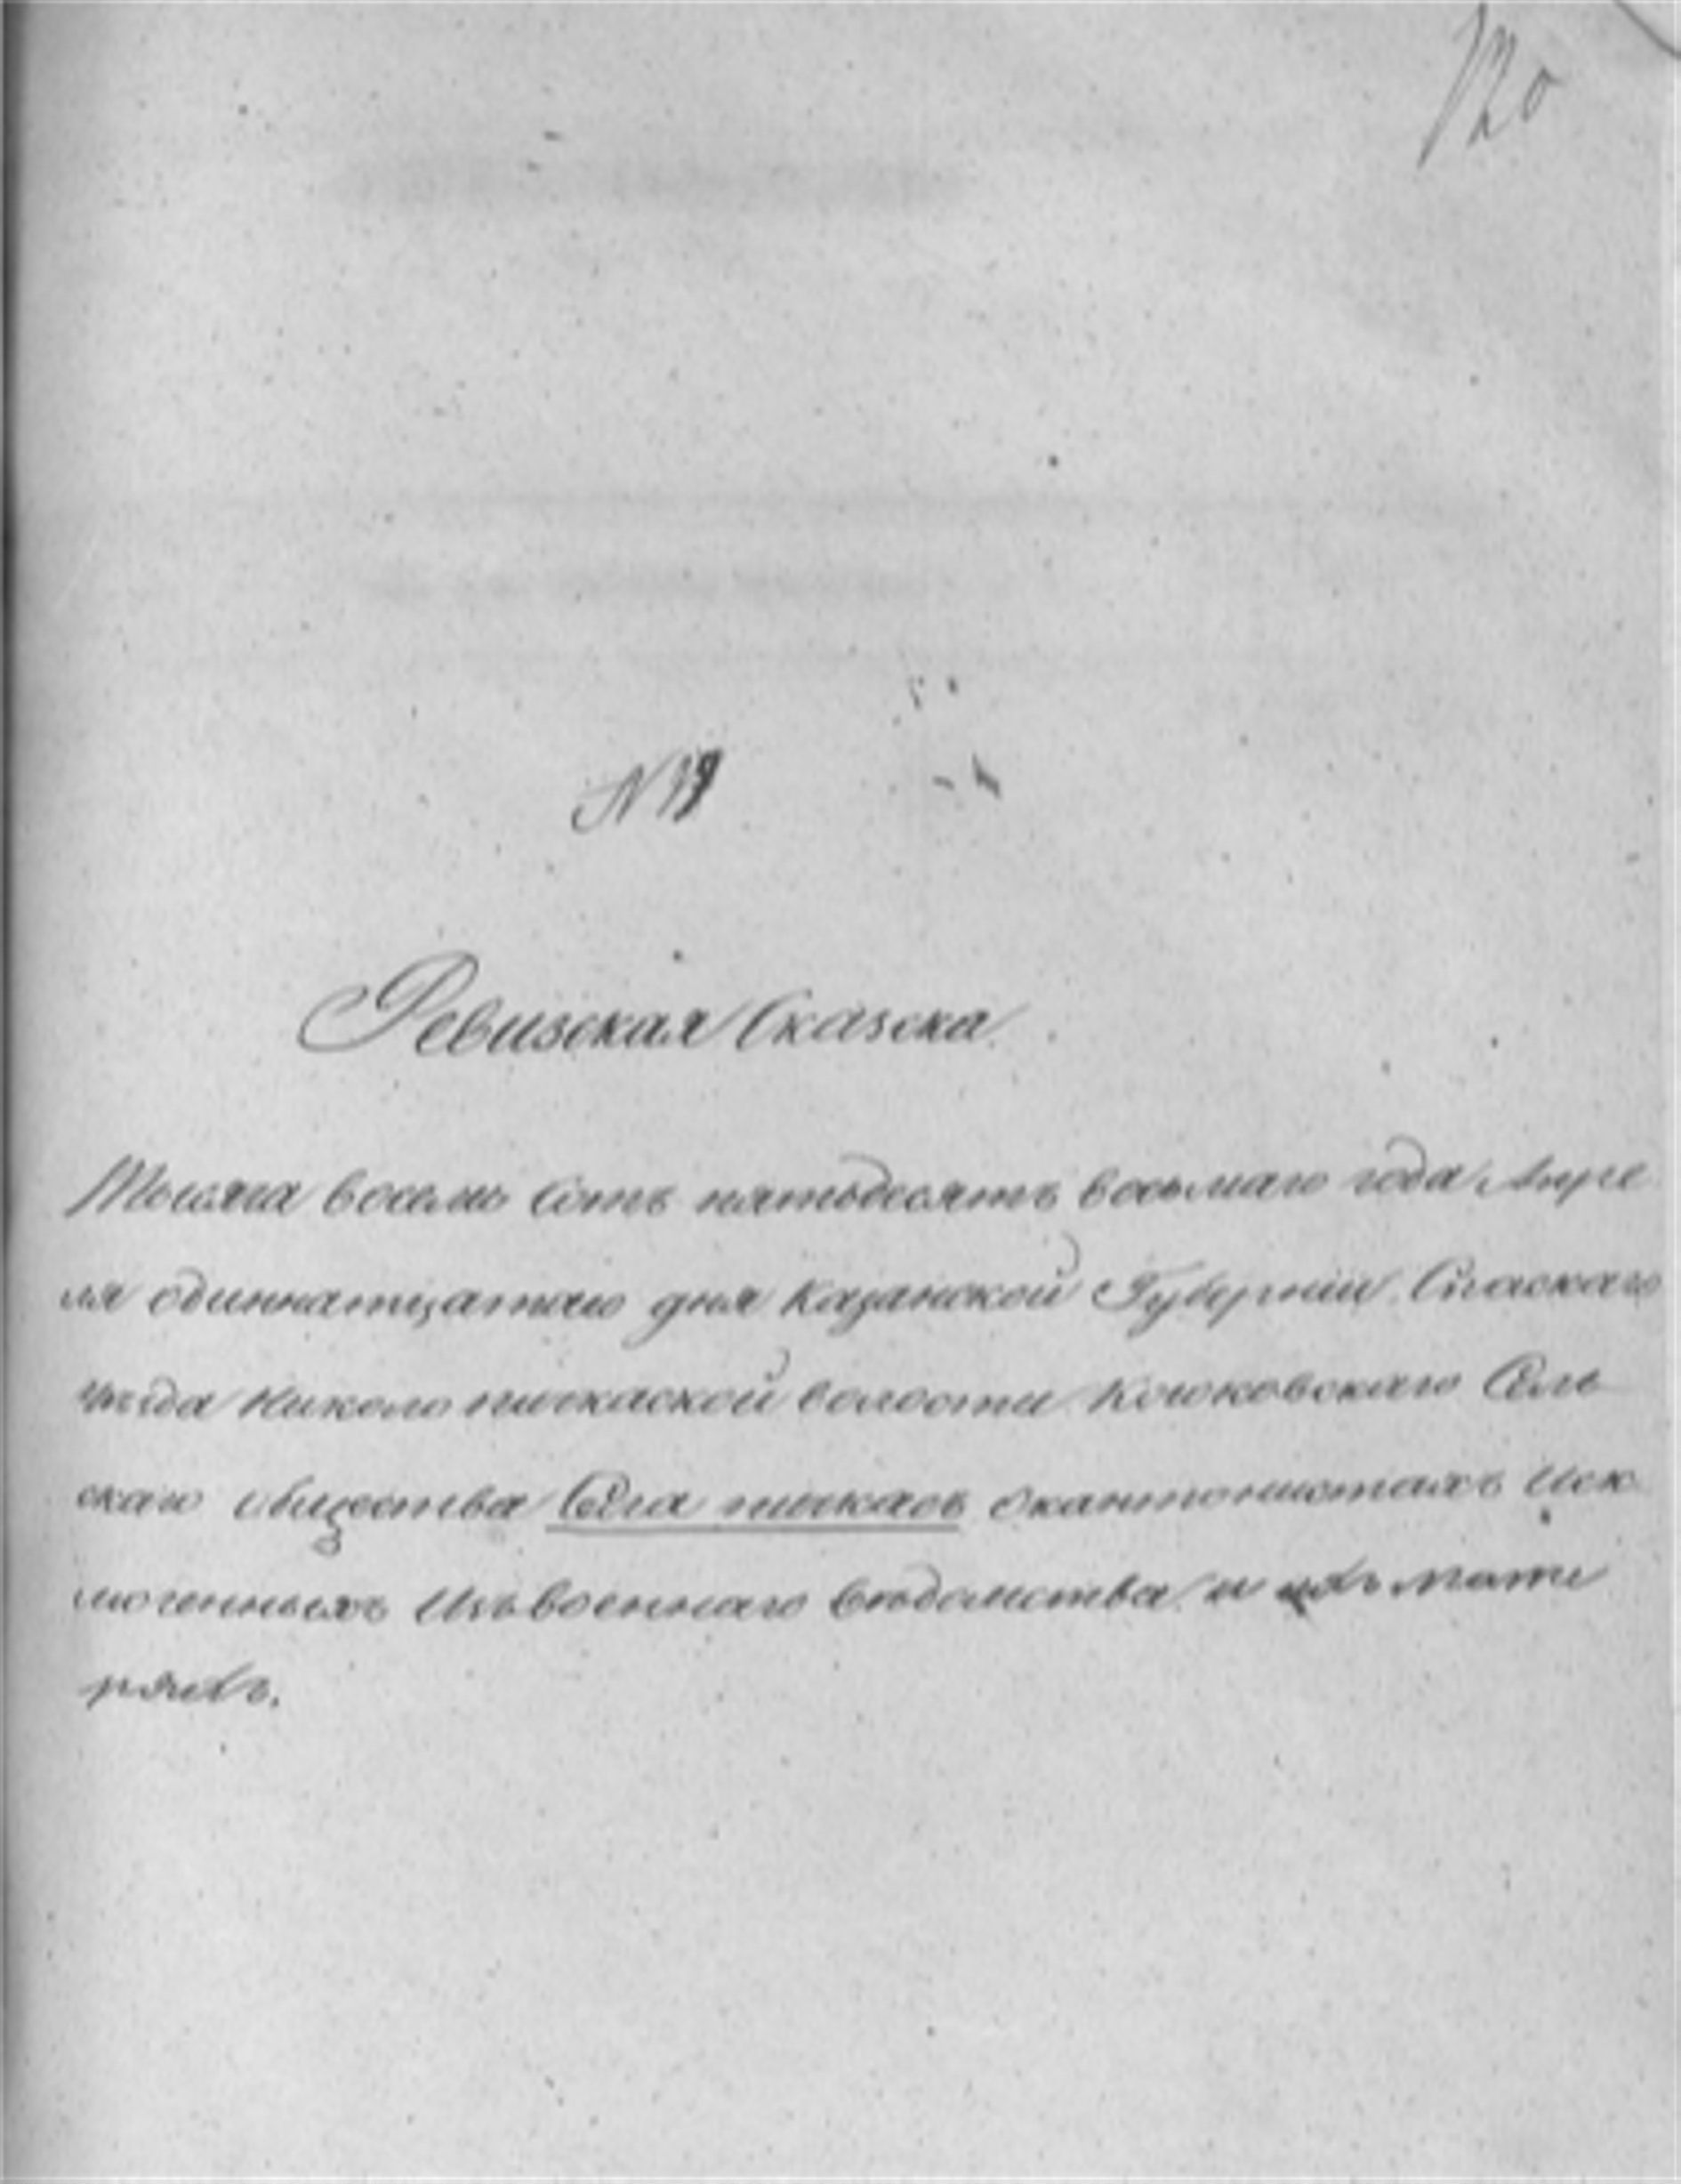 120
N 19
Ревизская Сказка.
Тысяча восемь Сотъ пятьдесятъ восьмаго года Апре
ля одиннатцатаго дня Казанской Губерніи Спаскаго
уѣзда Николо пичкаской волости Кошковскаго Сель
скаго общества Села пичкасъ оКантонистахъ Иск
люченныхъ Изъ военнаго вѣдомства и ихъ мате
ряхъ.